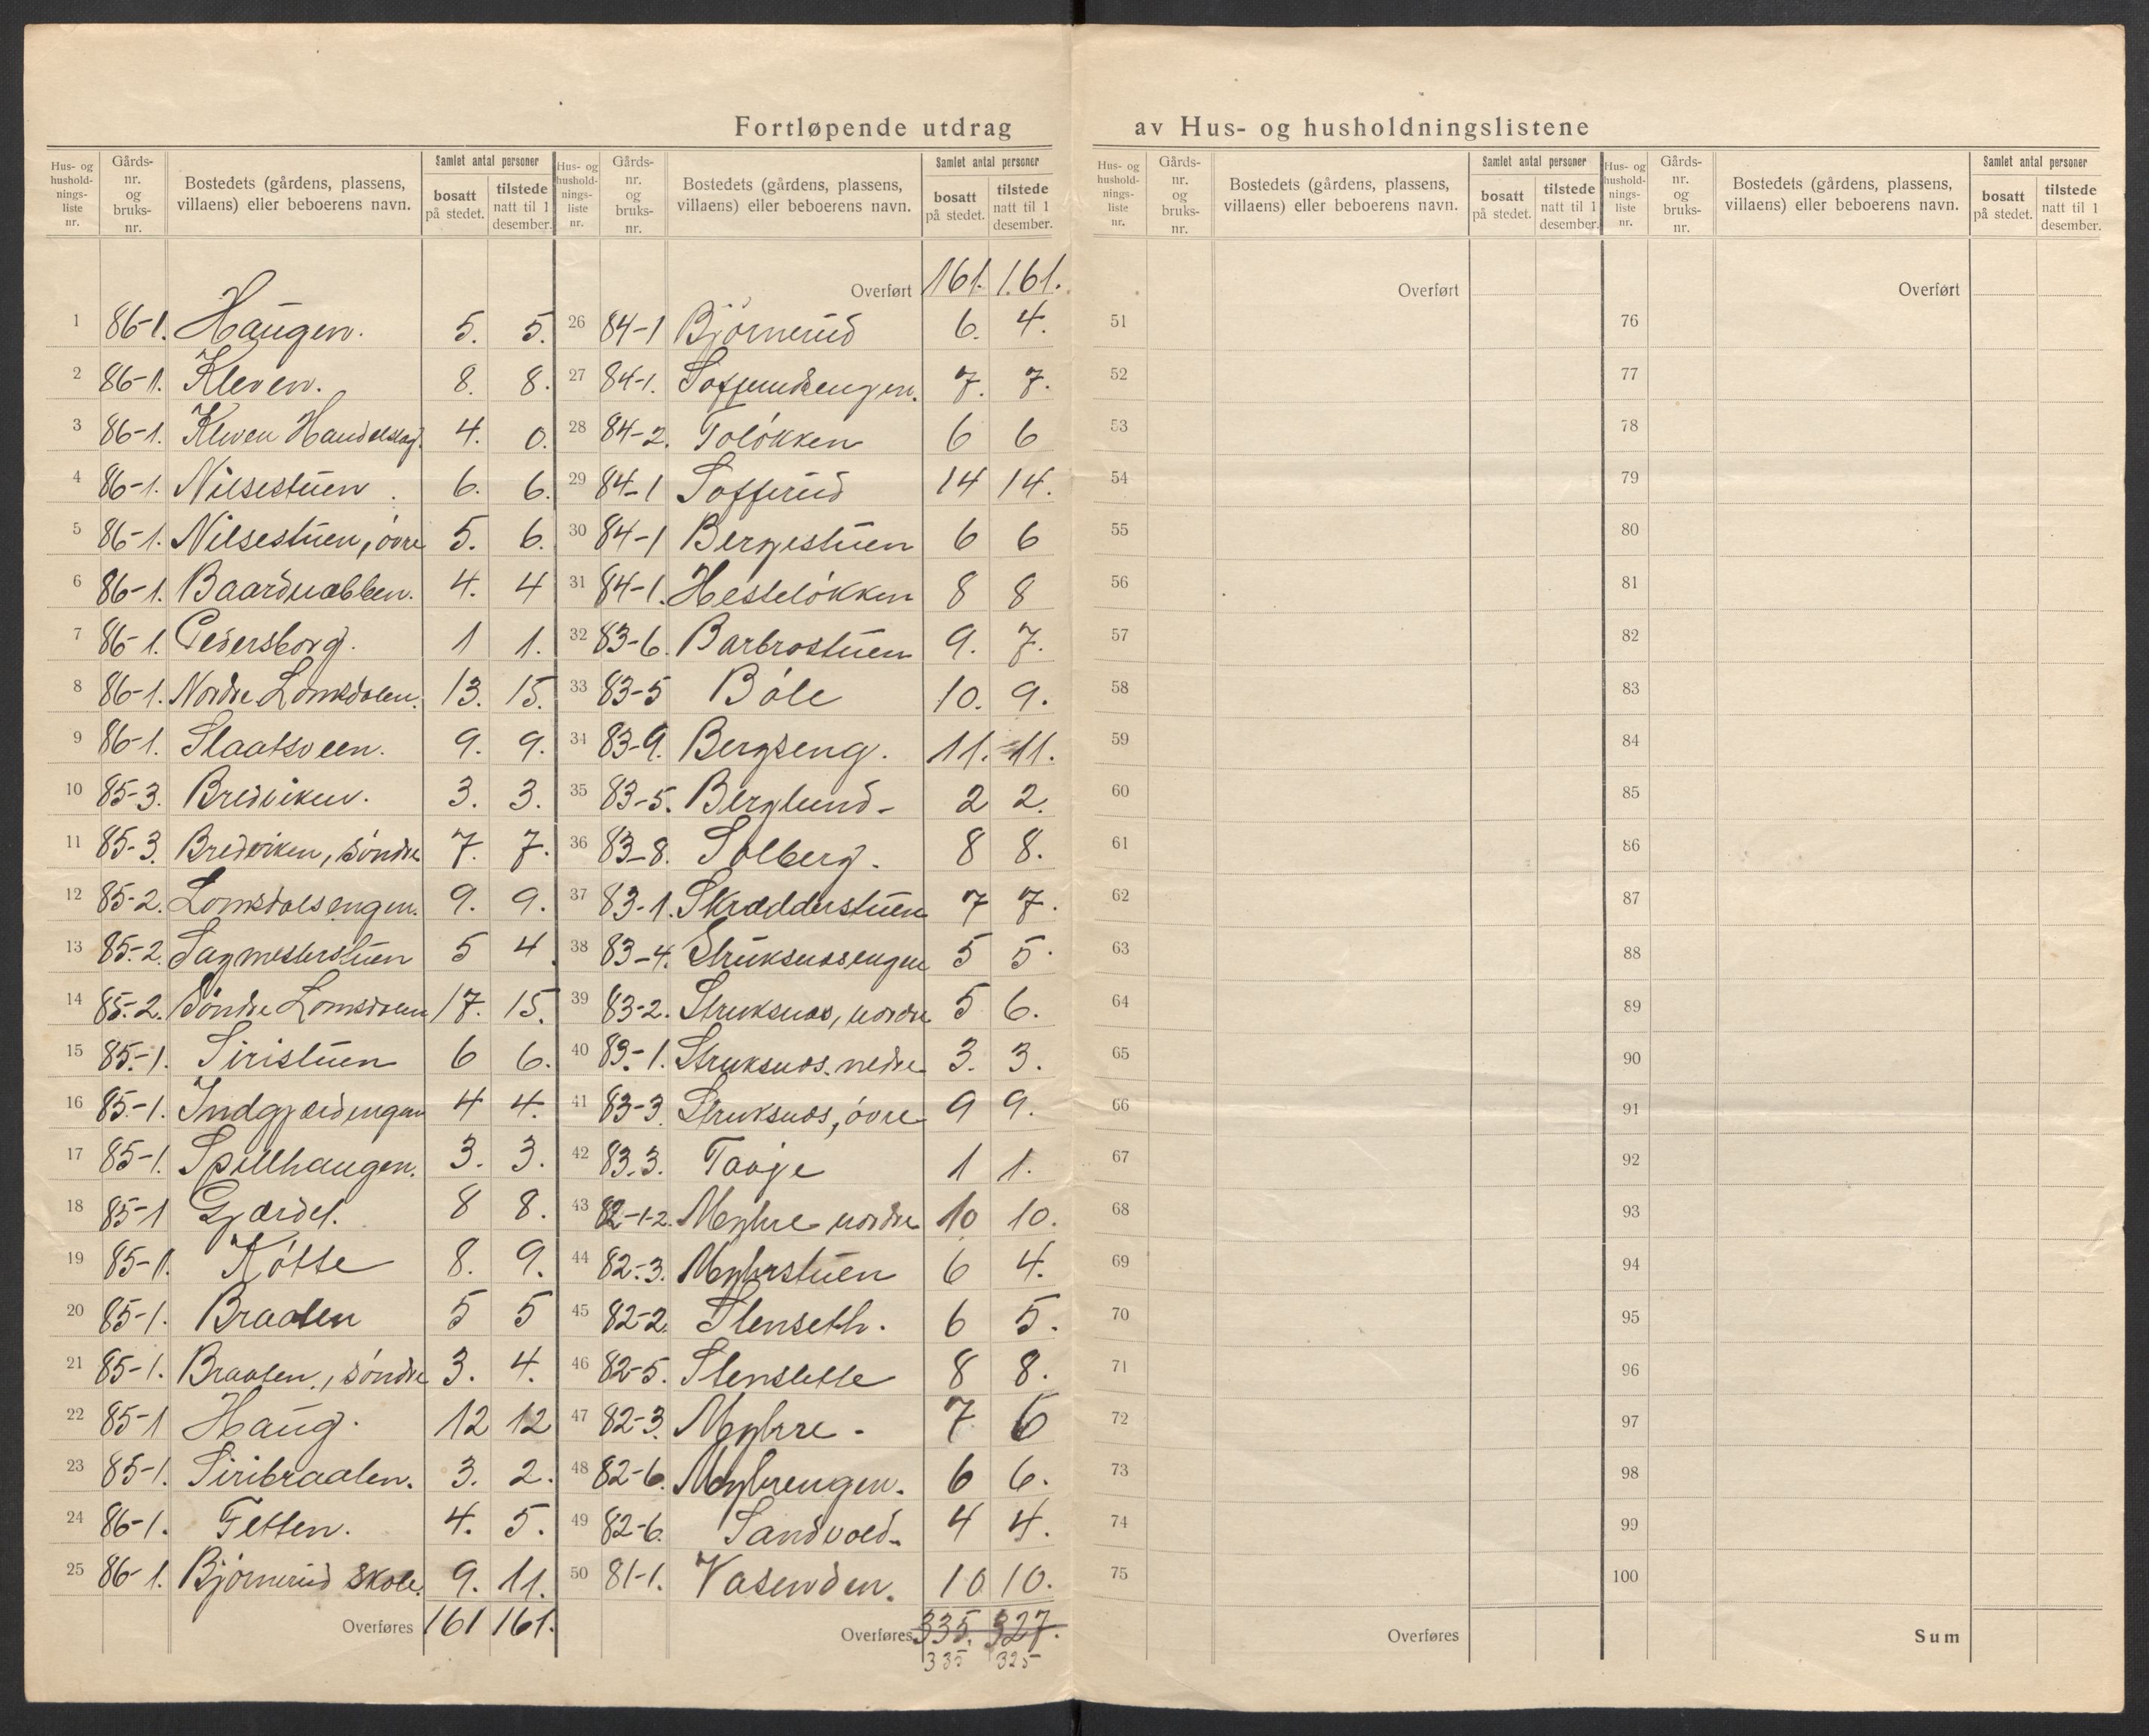 Fortløpende utdrag av Hus- og husholdningslistene
Hus- og hushold- nings- liste nr. | Gårds- nr. og bruks- nr. | Bostedets (gårdens, plassens, villaens) eller beboerens navn. | Samlet antal personer | bosatt på stedet. | tilstede natt til 1 desember.
1 86-1. Haugen. 5. 5.
2 86-1. Kleven. 8. 8.
3 86-1. Kleven Handelslag. 4. 0.
4 86-1. Nilsestuen. 6. 6.
5 86-1. Nilsestuen, övre 5. 6.
6 86-1. Baardnabben. 4. 4
7 86-1. Pedersborg. 1 1.
8 86-1. Nordre Lomsdalen. 13. 15.
9 86-1. Slaatsveen. 9. 9.
10 85-3. Brediviken. 3. 3.
11 85-3. Brediviken, söndre 7. 7.
12 85-2. Lomsdalsengen. 9. 9.
13 85-2. Sagmesterstuen 5 4.
14 85-2. Söndre Lomsdalen 17. 15.
15 85-1. Siristuen 6 6.
16 85-1. Indgjærdengen 4 4.
17 85-1. Spillhaugen. 3. 3.
18 85-1 Gjærdet. 8 8.
19 85-1. Kötte 8. 9.
20 85-1. Braaten 5 5
21 85-1. Braaten, söndre 3. 4.
22 85-1 Haug. 12 12
23 85-1. Siribraaten. 3. 2.
24 86-1. Fetten. 4. 5.
25 86-1. Björnerud skole. 9. 11.
Overføres 161 161.
Hus- og hushold- nings- liste nr. | Gårds- nr. og bruks- nr. | Bostedets (gårdens, plassens, villaens) eller beboerens navn. | Samlet antal personer | bosatt på stedet. | tilstede natt til 1 desember.
Overført 161. 161.
26 84-1 Björnerud 6. 4.
27 84-1. Sofferudengen. 7. 7.
28 84-2. Tolökken 6 6
29 84-1 Sofferud 14 14.
30 84-1 Bergestuen 6 6
31 84-1. Hestelökken 8 8
32 83-6. Barbrostuen 9. 7.
33 83-5 Böle 10. 9.
34 83-9. Bergseng. 11. 11.
35 83-5. Berglund- 2 2.
36 83-8. Solberg. 8 8.
37 83-1. Skrædderstuen 7 7.
38 83-4. Struksnæsengen 5 5.
39 83-2. Struksnæs, nordre 5 6.
40 83-1. Struksnæs. nedre 3. 3.
41 83-3. Struksnæs, övre 9 9.
42 83.3. Taaje 1 1.
43 82-1-2. Myhre nordre 10 10.
44 82-3. Myhrstuen 6 4.
45 82-2. Stenseth. 6 5.
46 82-5. Stenslette 8 8.
47 82-3. Myhre. 7. 6
48 82-6. Myhrengen. 6 6.
49 82-6. Sandvold. 4 4.
50 81-1. Vasenden. 10 10.
Overføres 335. 327.
335 325
Hus- og hushold- nings- liste nr. | Gårds- nr. og bruks- nr. | Bostedets (gårdens, plassens, villaens) eller beboerens navn. | Samlet antal personer | bosatt på stedet. | tilstede natt til 1 desember.
Overført
51
52
53
54
55
56
57
58
59
60
61
62
63
64
65
66
67
68
69
70
71
72
73
74
75
Overføres
Hus- og hushold- nings- liste nr. | Gårds- nr. og bruks- nr. | Bostedets (gårdens, plassens, villaens) eller beboerens navn. | Samlet antal personer | bosatt på stedet. | tilstede natt til 1 desember.
Overført
76
77
78
79
80
81
82
83
84
85
86
87
88
89
90
91
92
93
94
95
96
97
98
99
100
Sum